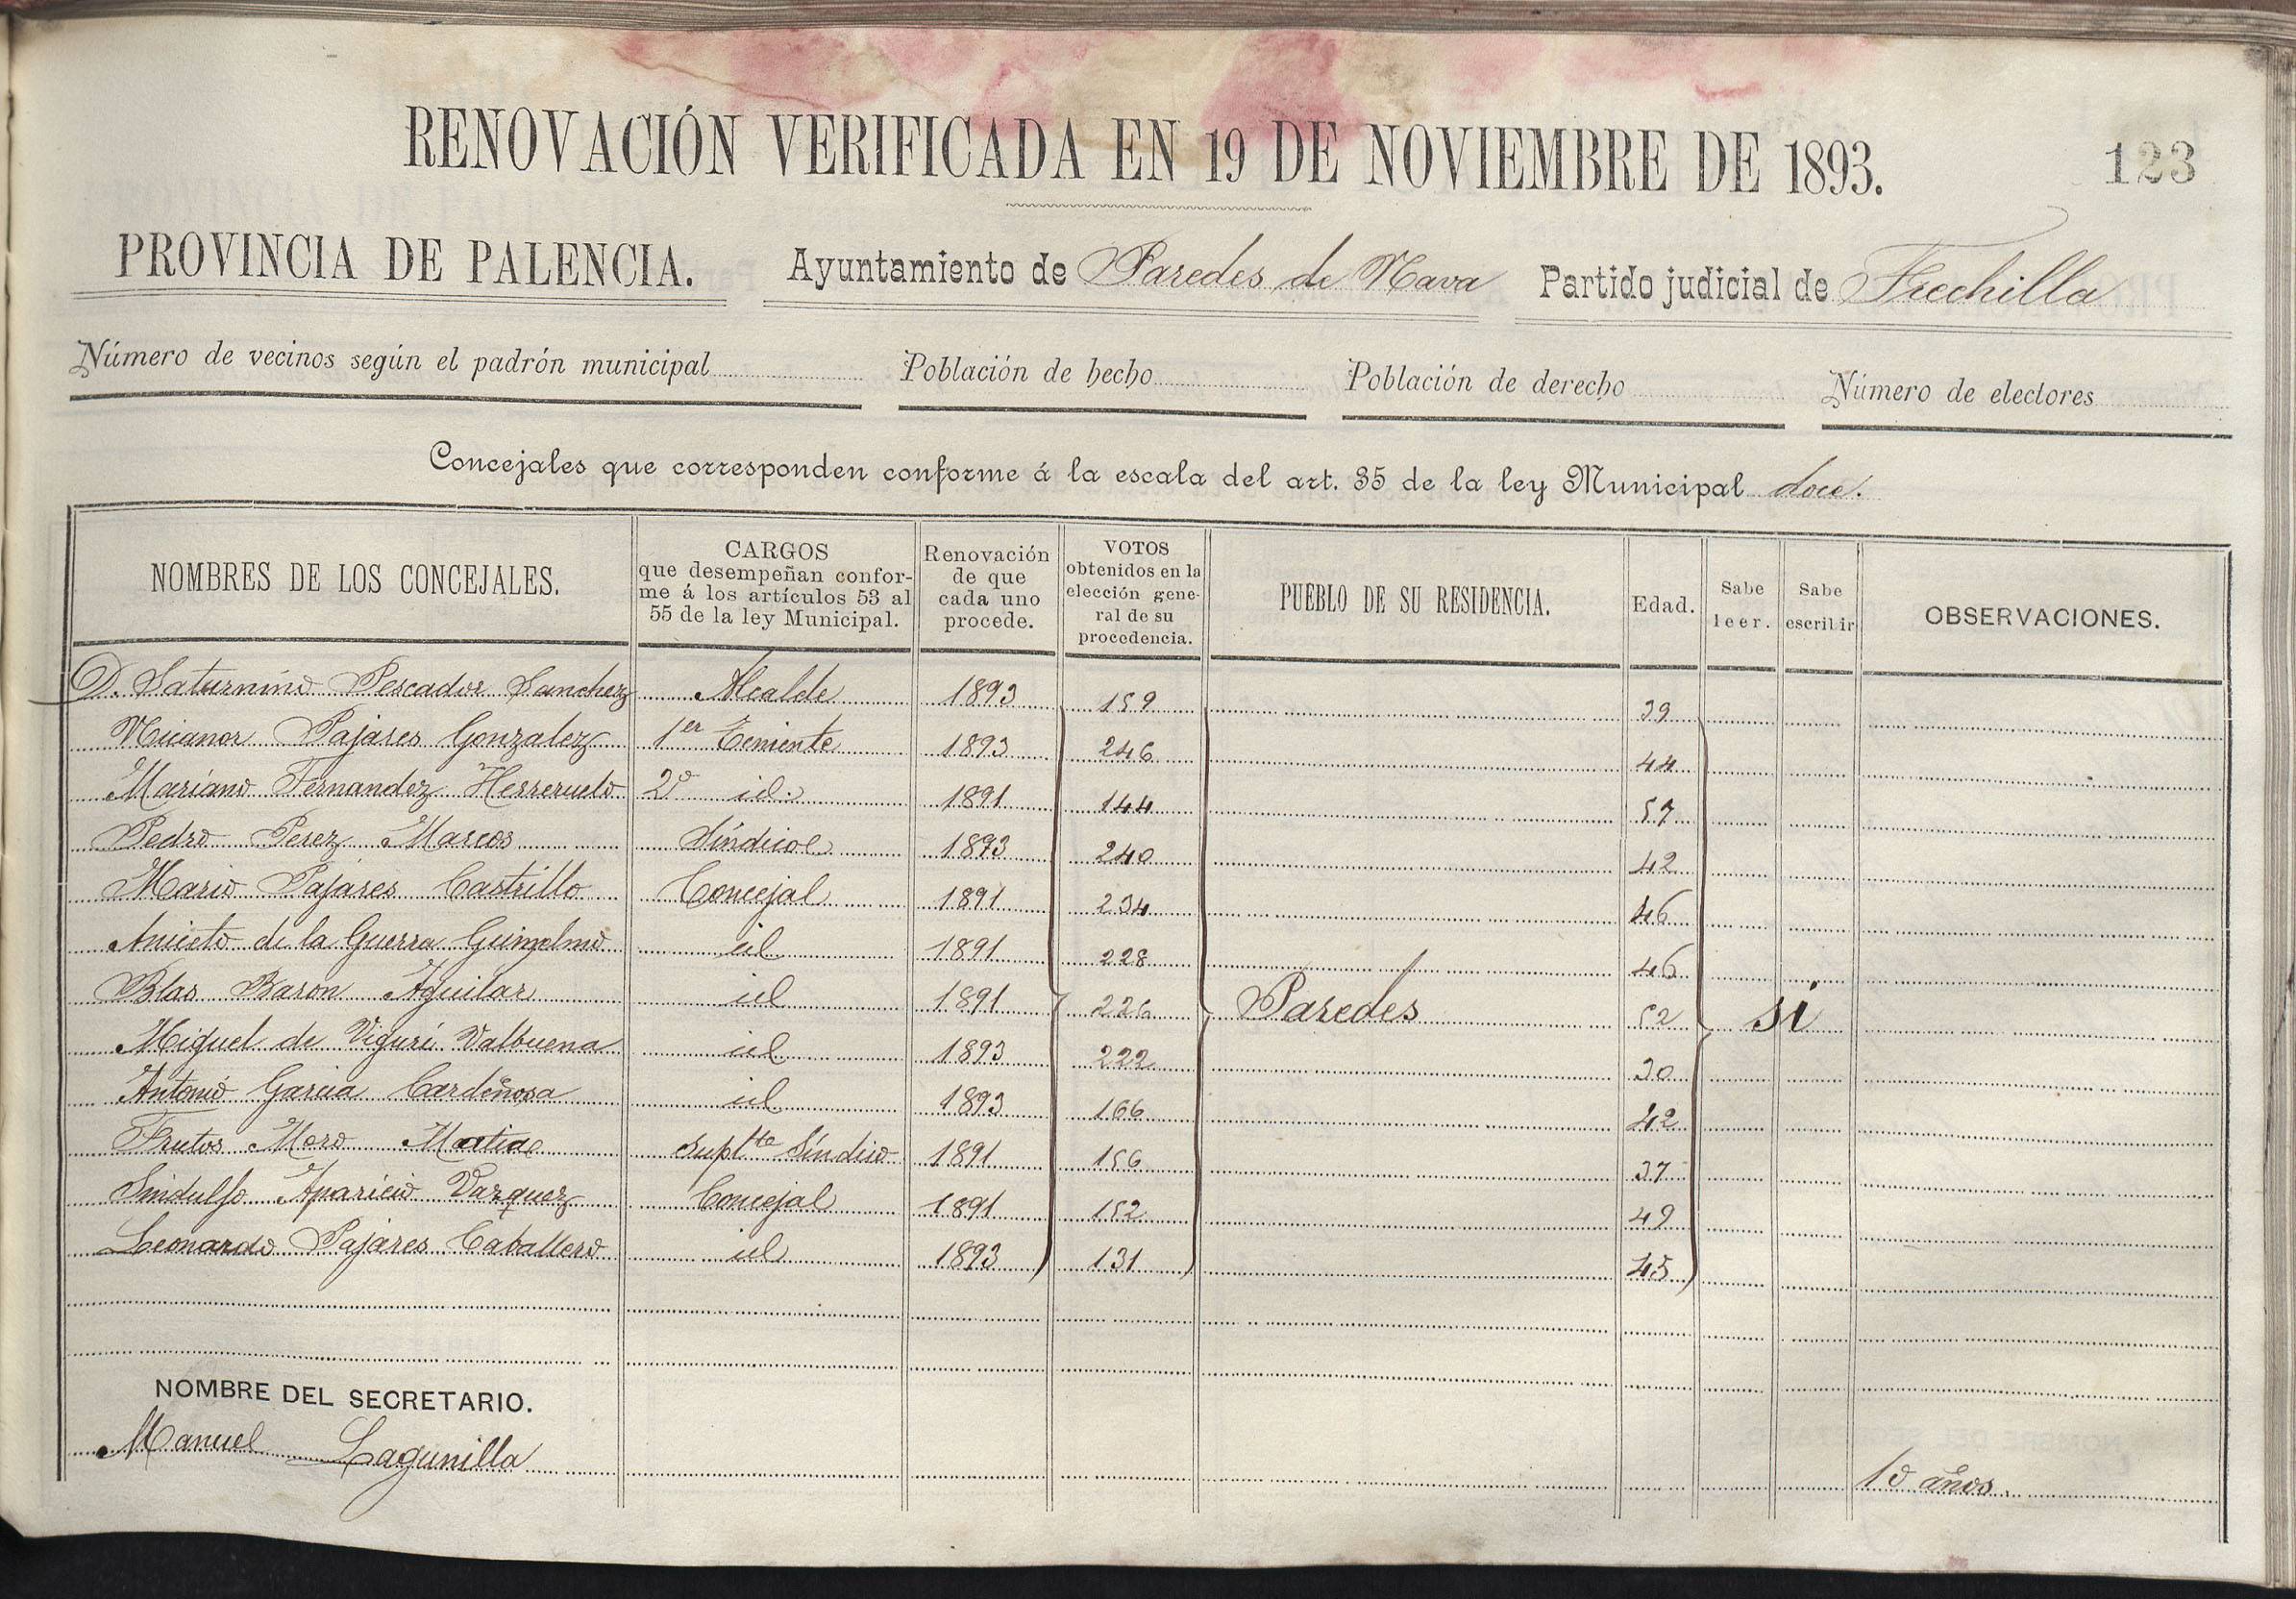 RENOVACIÓN VERIFICADA EN 19 DE NOVIEMBRE DE 1893.
123
PROVINCIA DE PALENCIA. Ayuntamiento de Paredes de Nava Partido judicial de Frechilla
Número de vecinos según el padrón municipal Población de hecho Población de derecho Número de electores
Concejales que corresponden conforme á la escala del art. 35 de la ley Municipal doce.
NOMBRES DE LOS CONCEJALES. CARGOS que desempeñan conforme á los artículos 53 al 55 de la ley Municipal. Renovación de que cada uno procede. VOTOS obtenidos en la elección general de su procedencia. PUEBLO DE SU RESIDENCIA. Edad. Sabe leer. Sabe escribir OBSERVACIONES.
D. Saturnino Pescador Sanchez Alcalde 1893 159 39
Nicanor Pajares Gonzalez 1er Teniente 1893 246 44
Mariano Fernandez Herreruelo 2º id. 1891 144 57
Pedro Perez Marcos Síndico 1893 240 42
Mario Pajares Castrillo Concejal 1891 234 46
Aniceto de la Guerra id 1891 228 46
Blas Baron Aguilar id 1891 226 Paredes 52 si
Miguel de Viguri Valbuena id 1893 222 30
Antonio Garcia Cardeñosa id 1893 166 42
Frutos Moro Supltte Síndico 1891 156 37
Sindulfo Aparicio Vazquez Concejal 1891 152 49
Leonardo Pajares Caballero id 1893 131 45
NOMBRE DEL SECRETARIO.
Manuel Lagunilla 10 años.